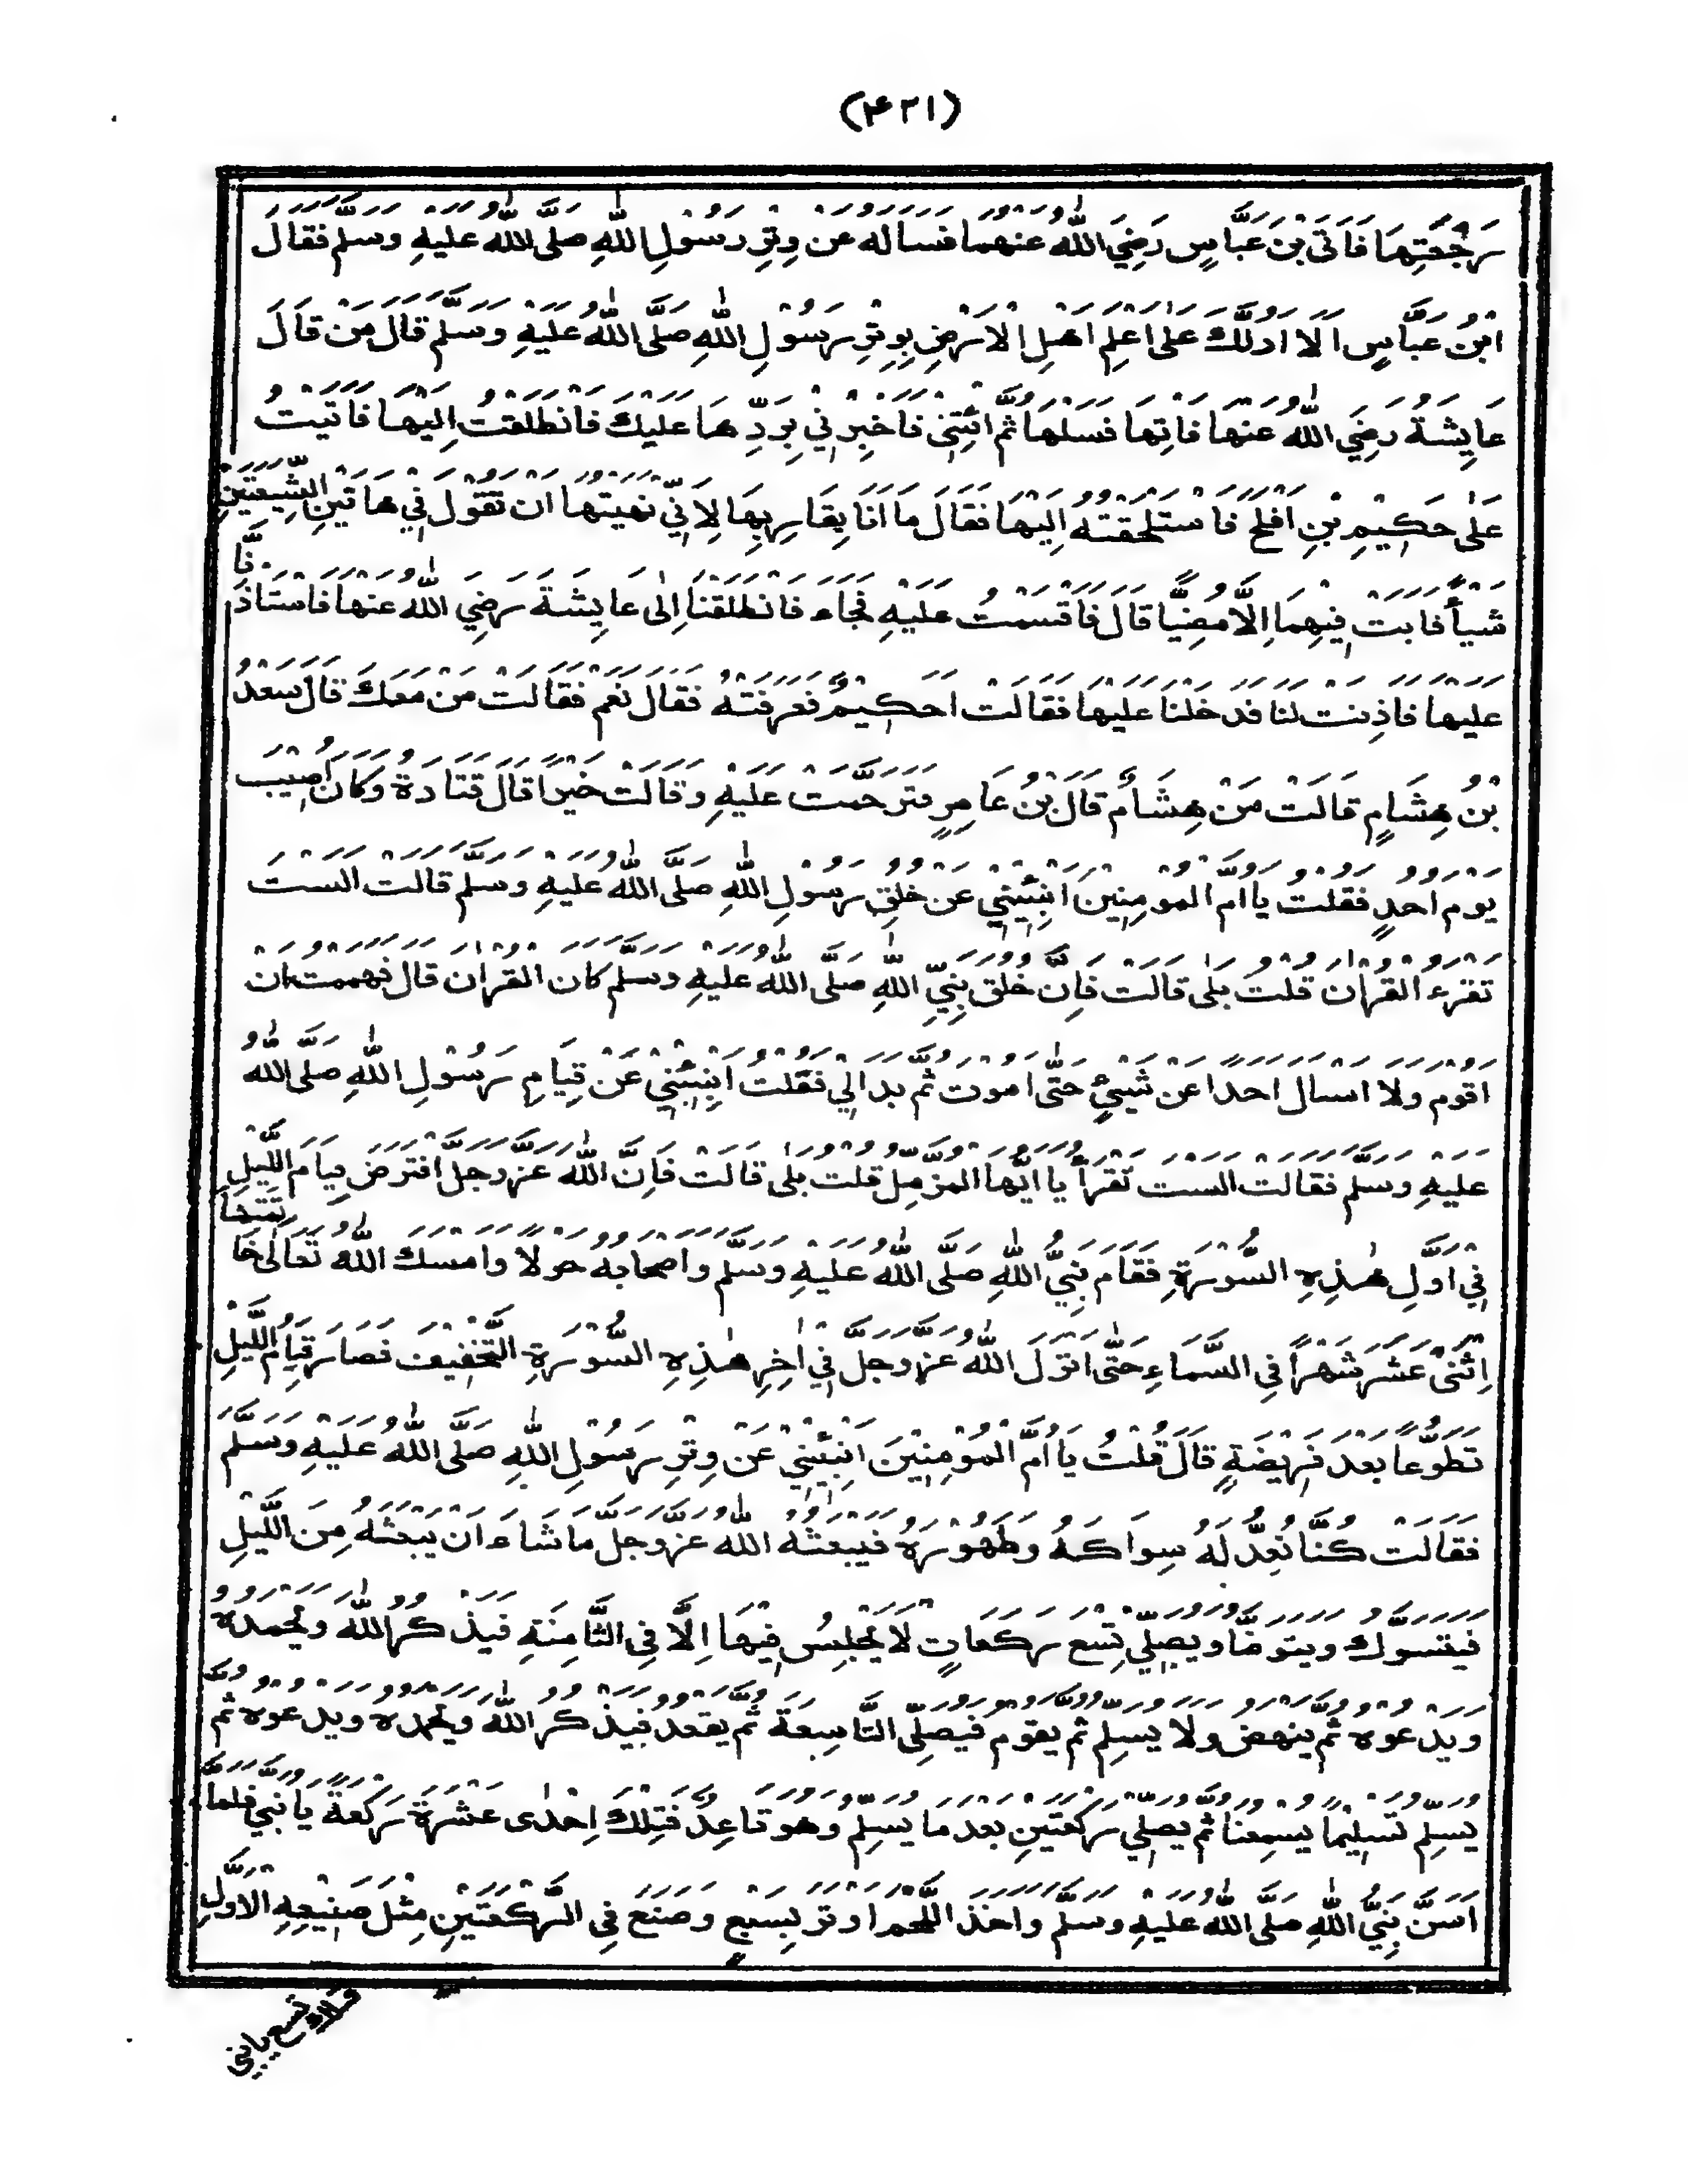 (۴۲۱)
رَجْعَتِهَا فَاَتَى بْنَ عَبَّاسٍ رَضِيَ اللّٰهُ عَنْهُمَا فَسَاَلَهُ عَنْ وِتْرِ رَسُوْلِ اللّٰهِ صَلَّى اللّٰهُ عَلَيْهِ وَسَلَّمَ فَقَالَ
ابْنُ عَبَّاسٍ اَلَا اَدُلُّكَ عَلٰى اَعْلَمِ اَهْلِ الْاَرْضِ بِوِتْرِ رَسُوْلِ اللّٰهِ صَلَّى اللّٰهُ عَلَيْهِ وَسَلَّمَ قَالَ مَنْ قَالَ
عَايِشَةُ رَضِيَ اللّٰهُ عَنْهَا فَاتِهَا فَسَلْهَا ثُمَّ ائْتِنِيْ فَاَخْبِرْنِيْ بِرَدِّهَا عَلَيْكَ فَانْطَلَقْتُ اِلَيْهَا فَاَتَيْتُ
عَلٰى حَكِيْمِ بْنِ اَفْلَحَ فَاسْتَلْحَقْتُهُ اِلَيْهَا فَقَالَ مَا اَنَا بِقَارِبِهَا لِاَنِّيْ نَهَيْتُهَا اَنْ تَقُوْلَ فِيْ هَاتَيْنِ الشِّيْعَتَيْنِ
شَيْأً فَاَبَتْ فِيْهِمَا اِلَّا مُضِيًّا قَالَ فَاَقْسَمْتُ عَلَيْهِ فَجَاءَ فَانْطَلَقْنَا اِلٰى عَايِشَةَ رَضِيَ اللّٰهُ عَنْهَا فَاسْتَاْذَنَّا
عَلَيْهَا فَاَذِنَتْ لَنَا فَدَخَلْنَا عَلَيْهَا فَقَالَتْ اَحَكِيْمٌ فَعَرَفَتْهُ فَقَالَ نَعَمْ فَقَالَتْ مَنْ مَعَكَ قَالَ سَعْدُ
بْنُ هِشَامٍ قَالَتْ مَنْ هِشَامٌ قَالَ بْنُ عَامِرٍ فَتَرَحَّمَتْ عَلَيْهِ وَقَالَتْ خَيْرًا قَالَ قَتَادَةُ وَكَانَ اُصِيْبَ
يَوْمَ اُحُدٍ فَقُلْتُ يَا اُمَّ الْمُوْمِنِيْنَ اَنْبِئِيْنِيْ عَنْ خُلُقِ رَسُوْلِ اللّٰهِ صَلَّى اللّٰهُ عَلَيْهِ وَسَلَّمَ قَالَتْ اَلَسْتَ
تَقْرَءُ الْقُرْاٰنَ قُلْتُ بَلٰى قَالَتْ فَاِنَّ خُلُقَ نَبِيِّ اللّٰهِ صَلَّى اللّٰهُ عَلَيْهِ وَسَلَّمَ كَانَ الْقُرْاٰنَ قَالَ فَهَمَمْتُ اَنْ
اَقُوْمَ وَلَا اَسْاَلَ اَحَدًا عَنْ شَيْئٍ حَتّٰى اَمُوْتَ ثُمَّ بَدَا لِيْ فَقُلْتُ اَنْبِئِيْنِيْ عَنْ قِيَامِ رَسُوْلِ اللّٰهِ صَلَّى اللّٰهُ
عَلَيْهِ وَسَلَّمَ فَقَالَتْ اَلَسْتَ تَقْرَأُ يَا اَيُّهَا الْمُزَّمِّلُ قُلْتُ بَلٰى قَالَتْ فَاِنَّ اللّٰهَ عَزَّ وَجَلَّ افْتَرَضَ قِيَامَ اللَّيْلِ
فِيْ اَوَّلِ هٰذِهِ السُّوْرَةِ فَقَامَ نَبِيُّ اللّٰهِ صَلَّى اللّٰهُ عَلَيْهِ وَسَلَّمَ وَاَصْحَابُهُ حَوْلًا وَاَمْسَكَ اللّٰهُ تَعَالٰى خَاتِمَتَهَا
اِثْنَىْ عَشَرَ شَهْرًا فِي السَّمَاءِ حَتّٰى اَنْزَلَ اللّٰهُ عَزَّ وَجَلَّ فِيْ اٰخِرِ هٰذِهِ السُّوْرَةِ التَّخْفِيْفَ فَصَارَ قِيَامُ اللَّيْلِ
تَطَوُّعًا بَعْدَ فَرِيْضَةٍ قَالَ قُلْتُ يَا اُمَّ الْمُوْمِنِيْنَ اَنْبِئِيْنِيْ عَنْ وِتْرِ رَسُوْلِ اللّٰهِ صَلَّى اللّٰهُ عَلَيْهِ وَسَلَّمَ
فَقَالَتْ كُنَّا نُعِدُّ لَهُ سِوَاكَهُ وَطَهُوْرَهُ فَيَبْعَثُهُ اللّٰهُ عَزَّ وَجَلَّ مَا شَاءَ اَنْ يَبْعَثَهُ مِنَ اللَّيْلِ
فَيَتَسَوَّكُ وَيَتَوَضَّا وَيُصَلِّيْ تِسْعَ رَكَعَاتٍ لَا يَجْلِسُ فِيْهَا اِلَّا فِي الثَّامِنَةِ فَيَذْكُرُ اللّٰهَ وَيَحْمَدُهُ
وَيَدْعُوْهُ ثُمَّ يَنْهَضُ وَلَا يُسَلِّمُ ثُمَّ يَقُوْمُ فَيُصَلِّي التَّاسِعَةَ ثُمَّ يَقْعُدُ فَيَذْكُرُ اللّٰهَ وَيَحْمَدُهُ وَيَدْعُوْهُ ثُمَّ
يُسَلِّمُ تَسْلِيْمًا يُسْمِعُنَا ثُمَّ يُصَلِّيْ رَكْعَتَيْنِ بَعْدَ مَا يُسَلِّمُ وَهُوَ قَاعِدٌ فَتِلْكَ اِحْدٰى عَشْرَةَ رَكْعَةً يَا بُنَيَّ فَلَمَّا
اَسَنَّ نَبِيُّ اللّٰهِ صَلَّى اللّٰهُ عَلَيْهِ وَسَلَّمَ وَاَخَذَ اللَّحْمَ اَوْتَرَ بِسَبْعٍ وَصَنَعَ فِي الرَّكْعَتَيْنِ مِثْلَ صَنِيْعِهِ الْاَوَّلِ
فتلك تسع يا بني